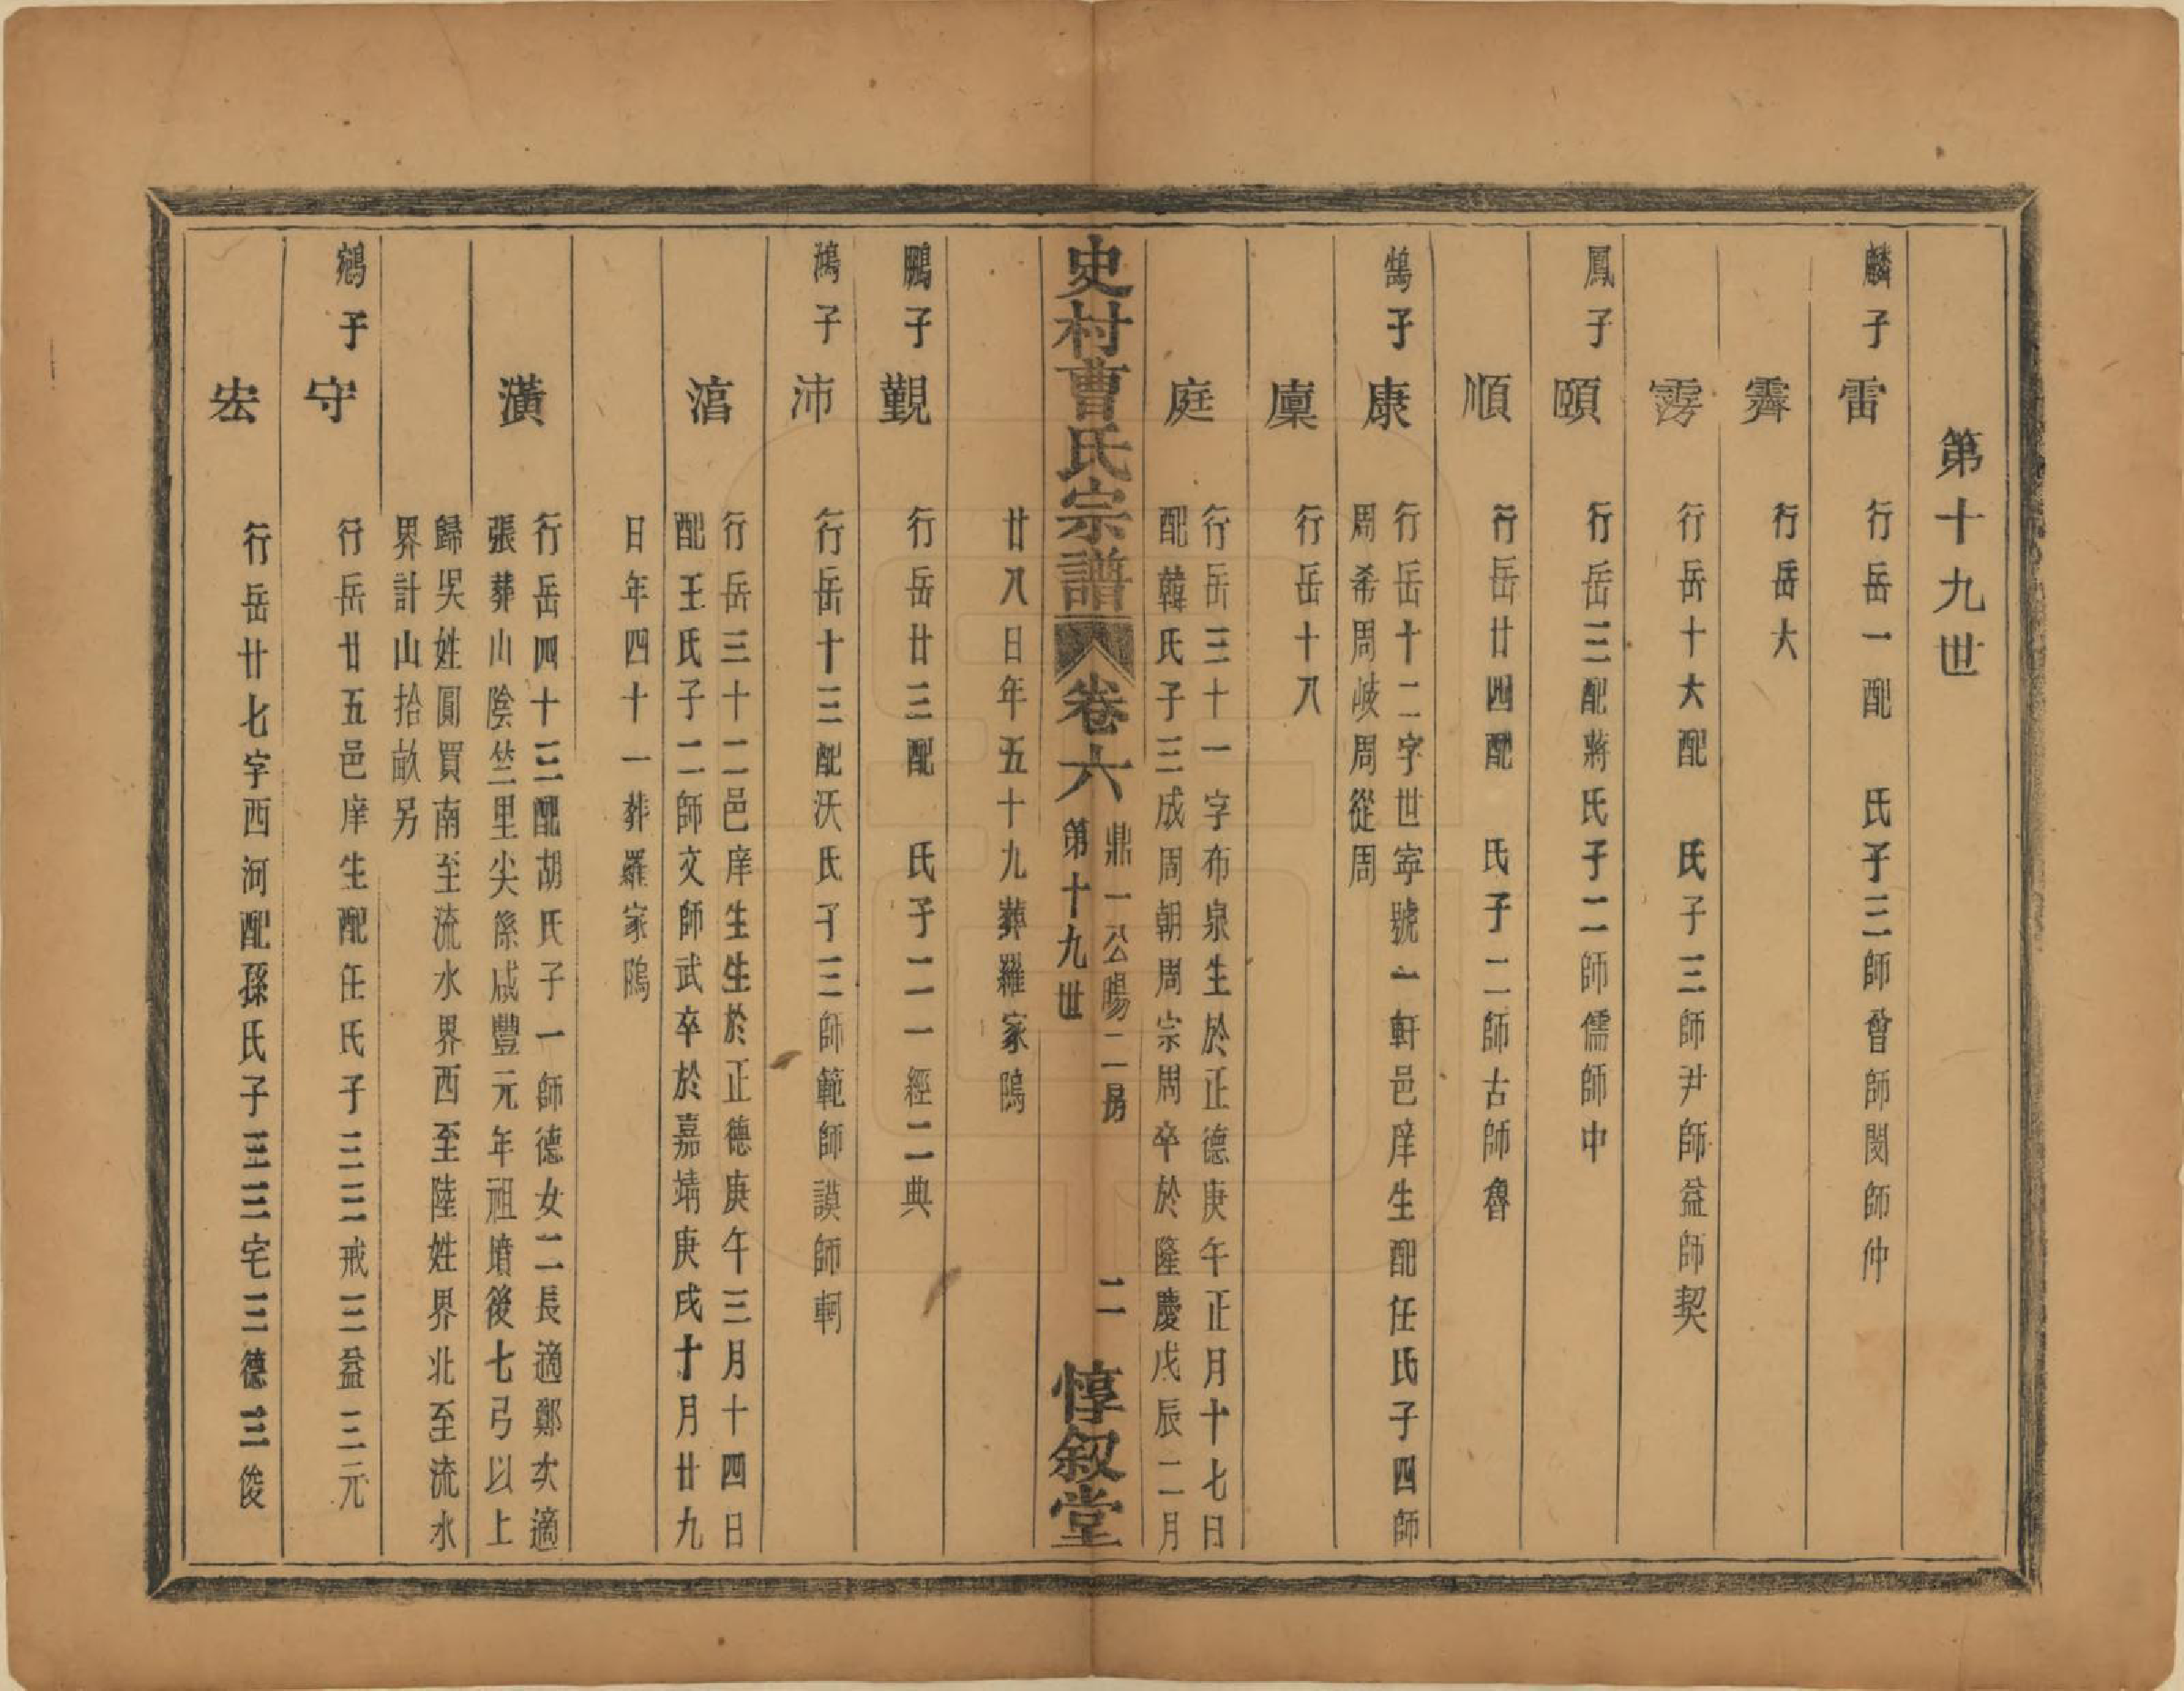 第十九世
麟子 雷 行岳一配　氏子三師曾師閔師仲
霽 行岳大
雱 行岳十大配　氏子三師尹師益師契
鳳子 頤 行岳三配蔣氏子二師儒師中
順 行岳廿四配　氏子二師古師魯
鵠子 康 行岳十二字世寧號一軒邑庠生配任氏子四師
周希周岐周從周
廩 行岳十八
庭 行岳三十一字布泉生於正德庚午正月十七日
配韓氏子三成周朝周宗周卒於隆慶戊辰二月
史村曹氏宗譜 卷六 鼎一公暘二房 第十九世 二 惇叙堂
廿八日年五十九葬羅家隖
鵬子 觀 行岳廿三配　氏子二一經二典
鴻子 沛 行岳十三配沃氏子三師範師謨師軻
湻 行岳三十二邑庠生生於正德庚午三月十四日
配王氏子二師文師武卒於嘉靖庚戌十月廿九
日年四十一葬羅家隖
潢 行岳四十三配胡氏子一師德女二長適鄭次適
張葬山陰竺里尖係咸豐元年祖墳後七弓以上
歸吳姓圓買南至流水界西至陸姓界北至流水
界計山拾畝另
鵷子 守 行岳廿五邑庠生配任氏子三三戒三益三元
宏 行岳廿七字西河配孫氏子三三宅三德三俊